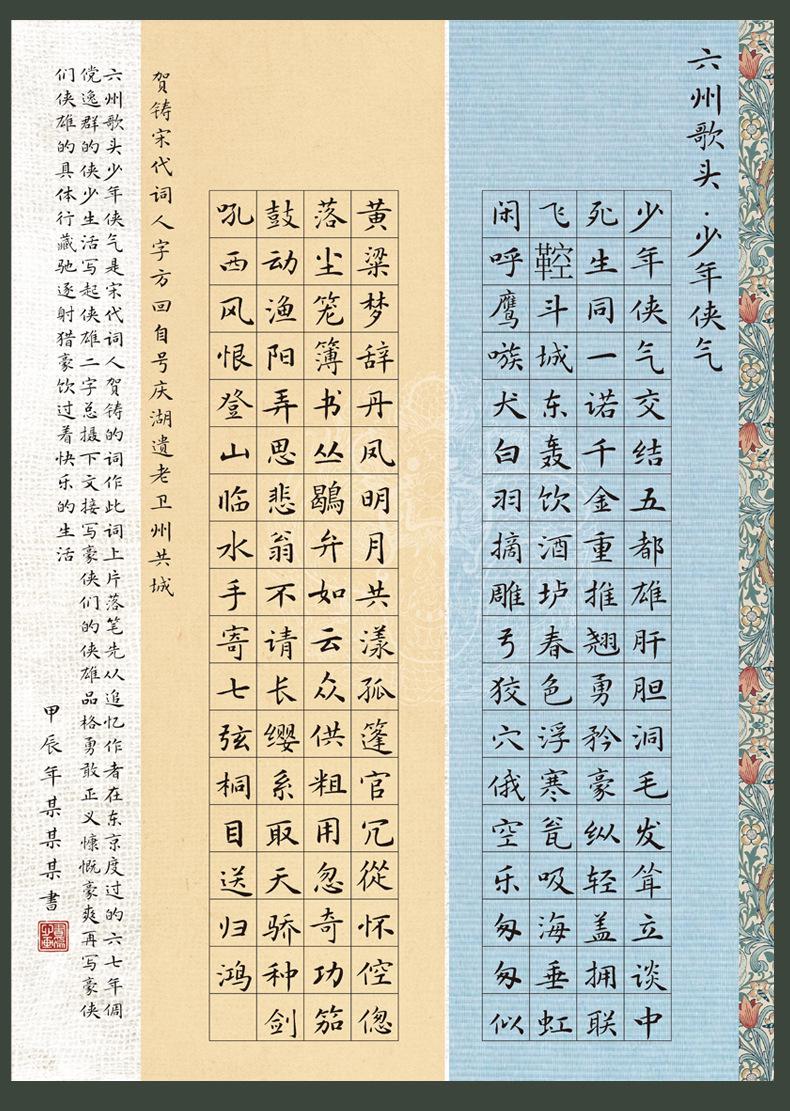 六州歌头·少年侠气
少年侠气交结五都雄肝胆洞毛发耸立谈中
死生同一诺千金重推翘勇矜豪纵轻盖拥联
飞鞚斗城东轰饮酒垆春色浮寒瓮吸海垂虹
闲呼鹰嗾犬白羽摘雕弓狡穴俄空乐匆匆似
黄粱梦辞丹凤明月共漾孤篷官冗從怀倥偬
落尘笼簿书丛鹖弁如云众供粗用忽奇功笳
鼓动渔阳弄思悲翁不请长缨系取天骄种剑
吼西风恨登山临水手寄七弦桐目送归鸿
賀铸宋代词人字方回自号庆湖遺老卫州共城
六州歌头少年侠气是宋代词人賀铸的词作此词上片落笔先从追忆作者在东京度过的六七年倜
傥逸群的侠少生活写起侠雄二字总摄下文接写豪侠们的侠雄品格勇敢正义慷慨豪爽再写豪侠
们侠雄的具体行藏驰逐射猎豪饮过着快乐的生活
甲辰年某某某書